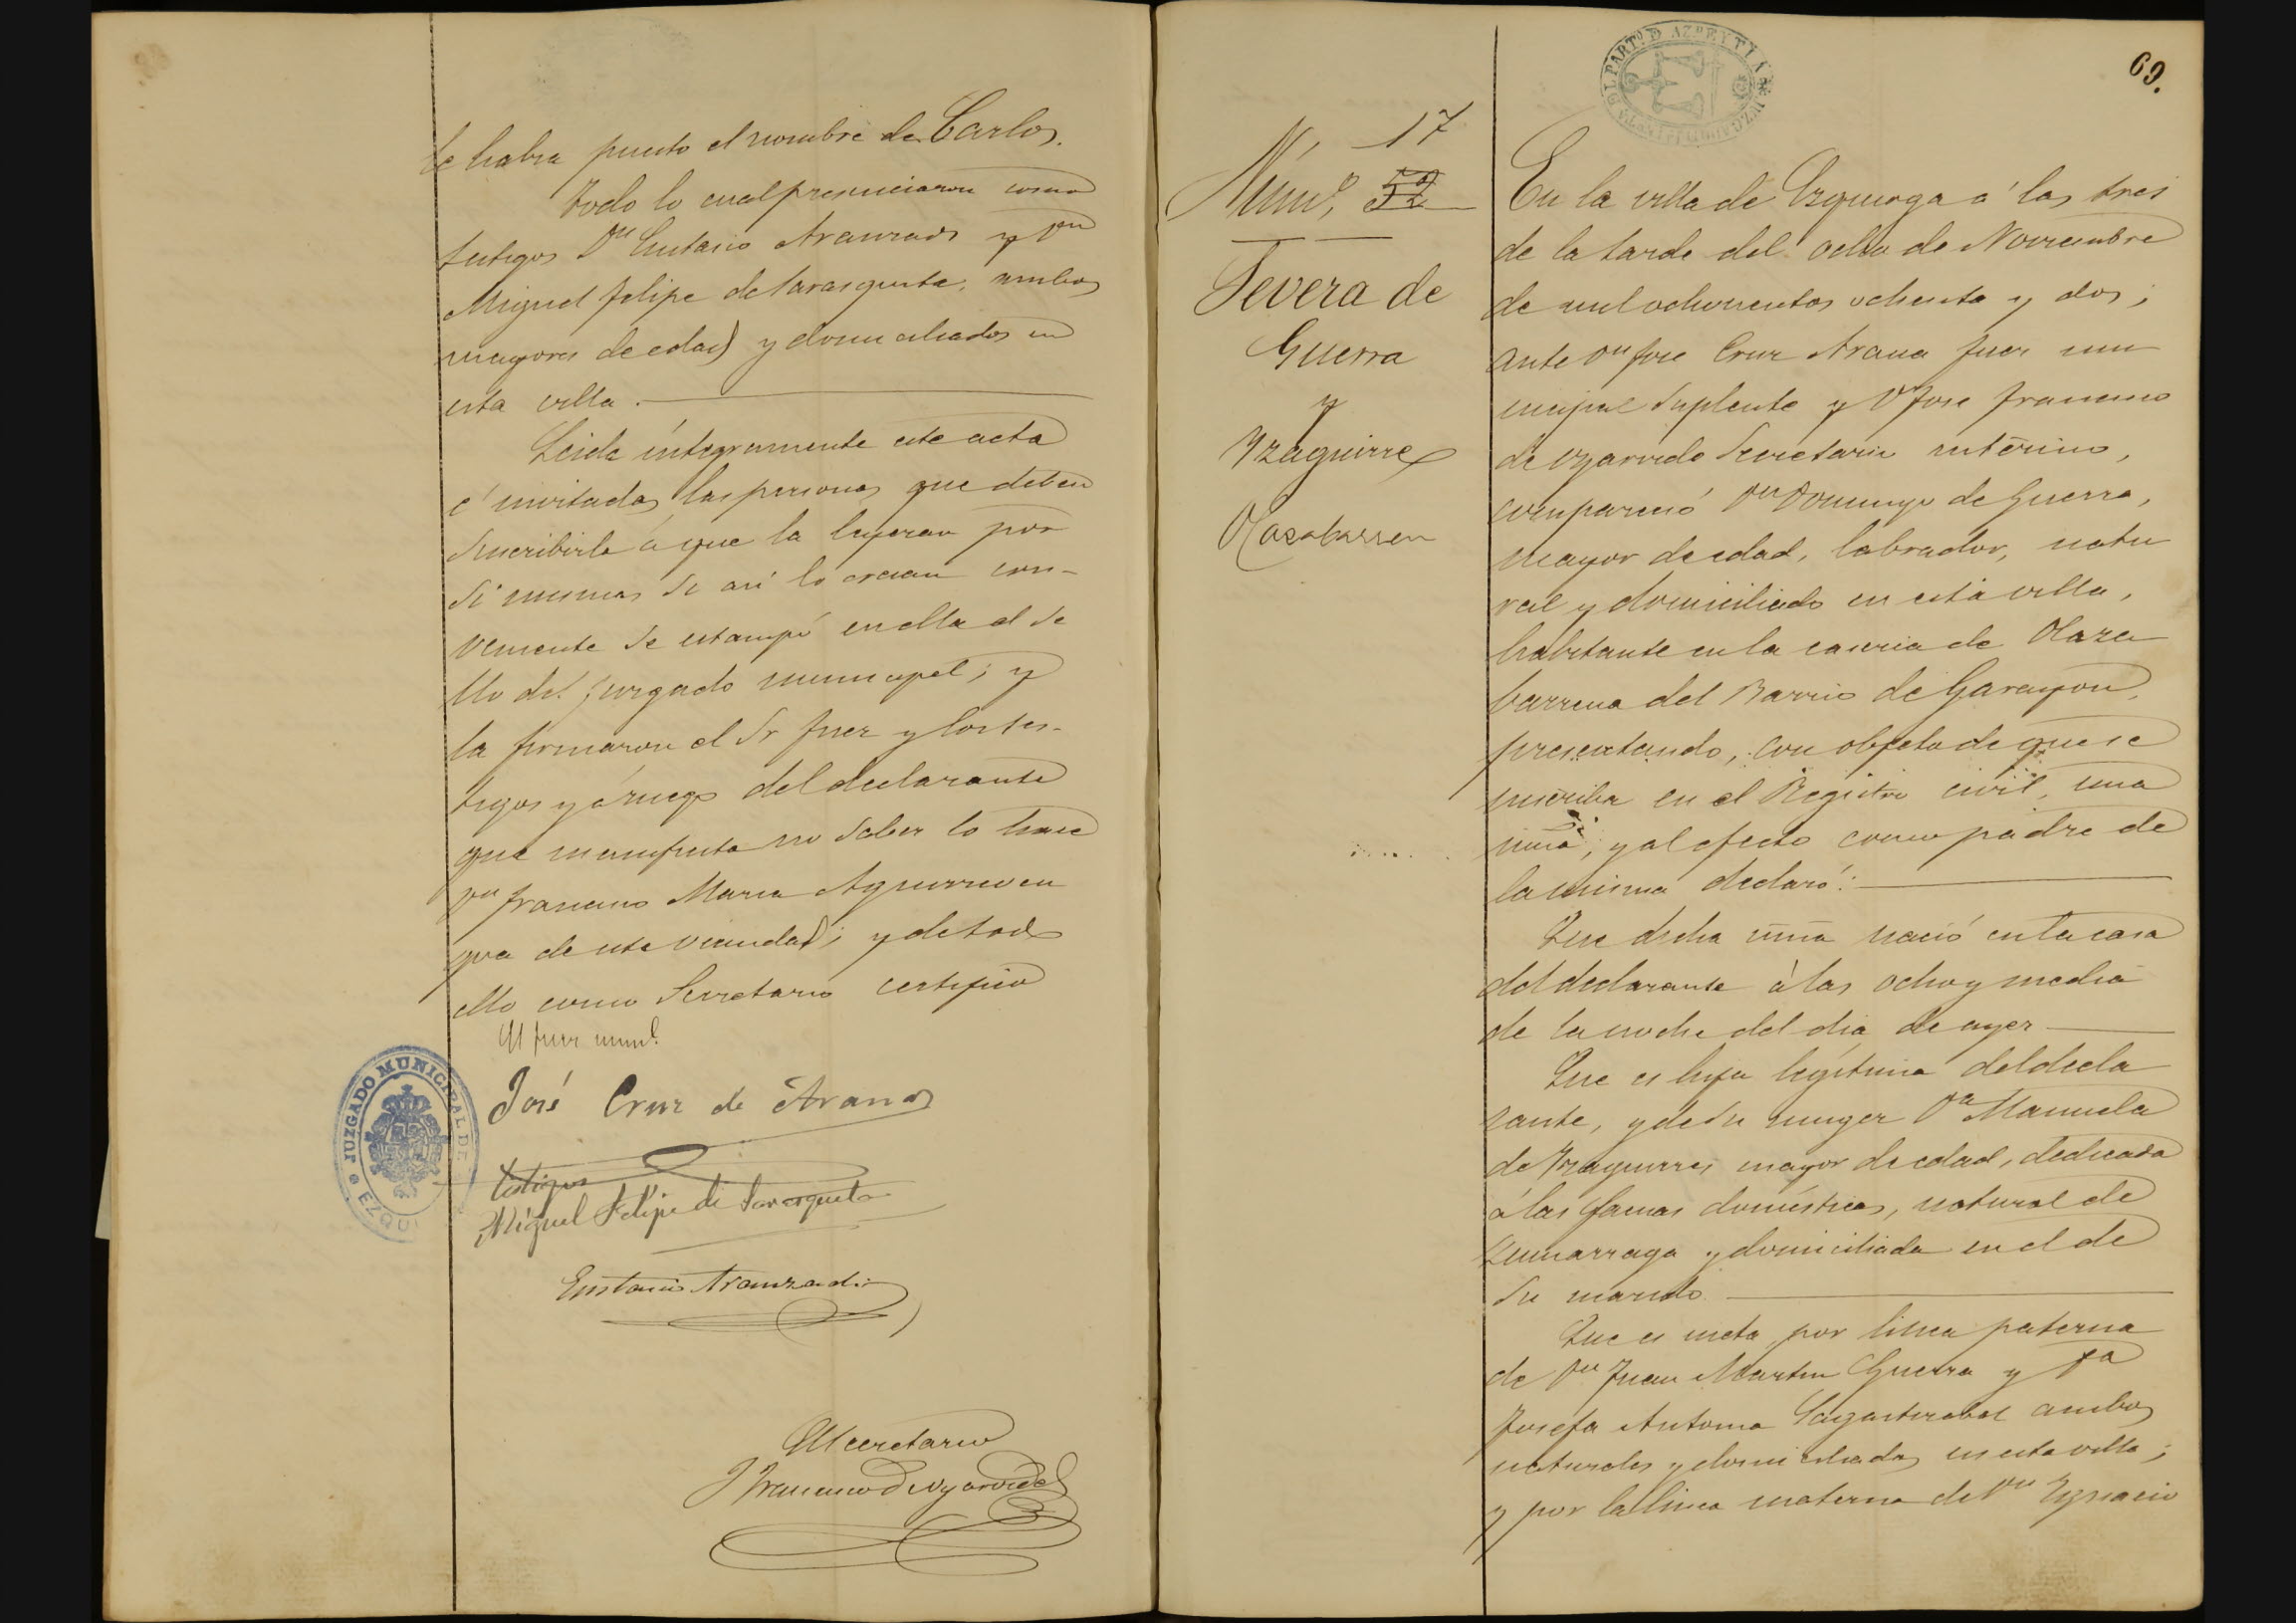 le habra puesto el nombre de Carlos.
Todo lo cual presenciaron como
testigos Dn Eustasio Aranzadi y Dn
Miguel Felipe de Sarasqueta, ambos
mayores de edad y domiciliados en
esta villa.
Leida íntegramente este acta
é invitadas las personas que deben
suscribirla á que la leyeran por
si mismas si asi lo creian con-
veniente se estampó en ella el se
llo del juzgado municipal; y
la firmaron el Sr Juez y los tes-
tigos y á ruego del declarante
que manifiesta no saber lo hace
Dn Francisco Maria Aguirreven
goa de esta vecindad; y de todo
ello como Secretario certifico
El Juez munl.
José Cruz de Arana
JUZGADO MUNICIPAL DE
EZQU
testigos
Miguel Felipe de Sarasqueta
Eustasio Aranzadi
El Secretario
69.
PARTº DE AZPEYTIA
17
Núm.º 52
Severa de
Guerra
y
Yzaguirre
Olazabarren
En la villa de Ezquioga a' las tres
de la tarde del ocho de Noviembre
de mil ochocientos ochenta y dos;
ante Dn Jose Cruz Arana Juez mu
nicipal Suplente y D Jose Francisco
de Secretario interino,
compareció Dn Domingo de Guerra,
mayor de edad, labrador, natu
ral y domiciliado en esta villa,
habitante en la caseria de Olaza
barrena del Barrio de
presentando, con objeto de que se
inscriba en el Registro civil, una
niña, y al efecto como padre de
la misma declaró:
Que dicha niña nació en la casa
del declarante á las ocho y media
de la noche del dia de ayer
Que es hija legítima del decla
rante, y de su muger Da Manuela
de Yzaguirre, mayor de edad, dedicada
á las faenas domésticas, natural de
Zumarraga y domiciliada en el de
su marido
Que es nieta por linea paterna
de Dn Juan Martin Guerra y Da
Josefa Antonia Sagastizabal ambos
naturales y domiciliados en esta villa;
y por la linea materna de Dn Ygnacio